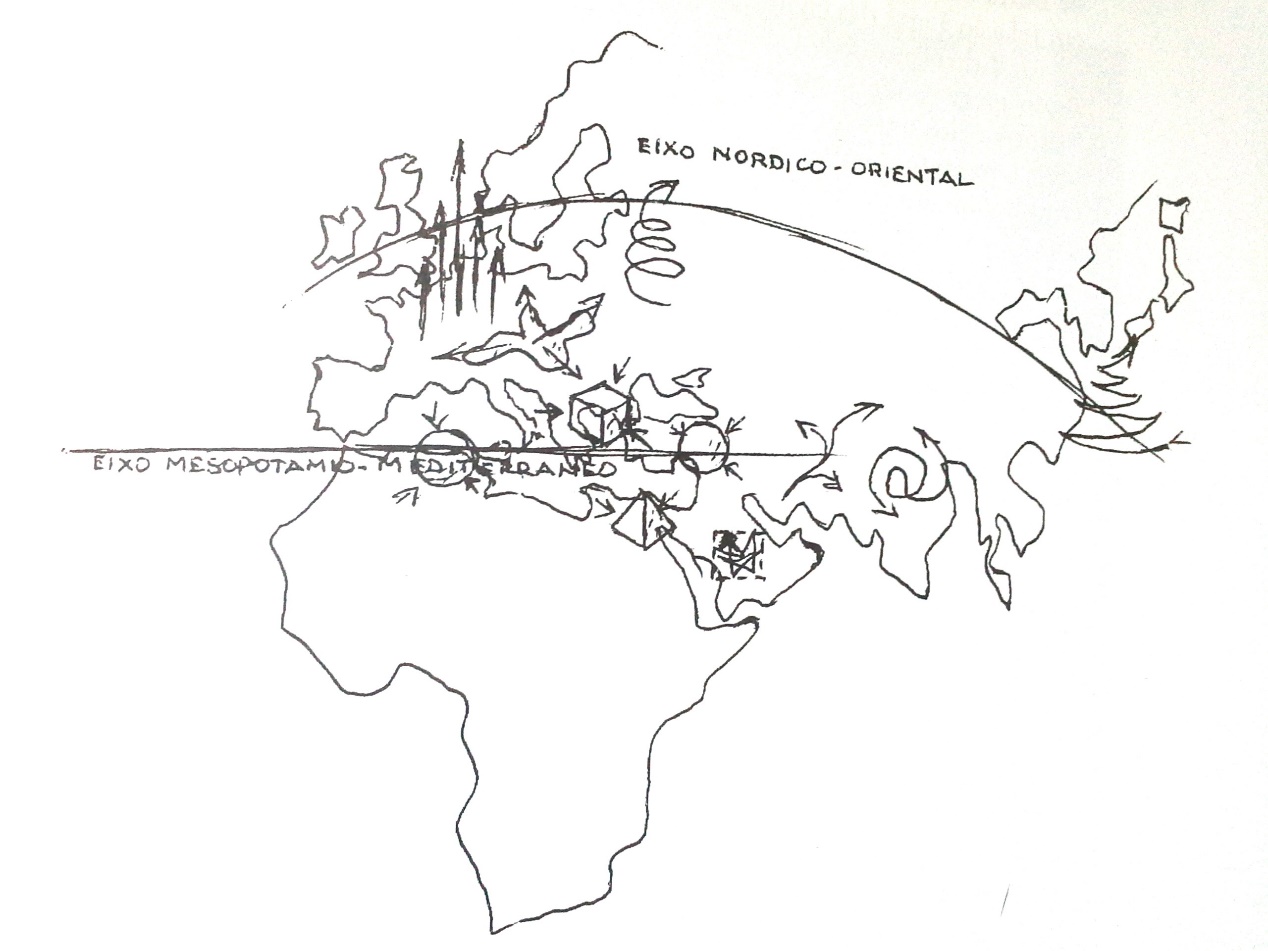 EIXO NORDICO - ORIENTAL
EIXO MESOPOTAMIO - MEDITERRANEO